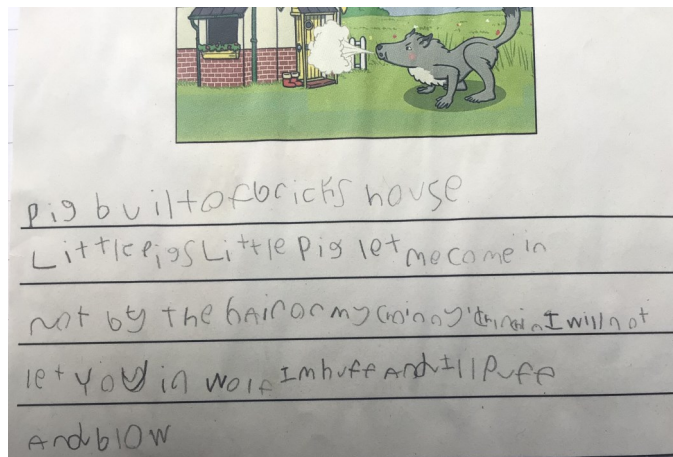 pig built of bricks house
Little pigs Little pig let me come in
not by the hair or my chinny chin I will not
let you in wolf Im huff And Ill Puff
And blow